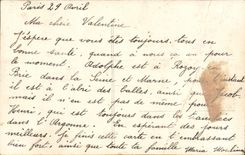 Paris 29 Avril
Ma chère Valentine
J'espère que vous êtes toujours tous en
bonne santé, quand à nous ça va pour
le moment. Adolphe est à Rozoy
Brie dans la Seine et Marne pour l'instant
il est à l'abri des balles, ainsi que Jacob
mais il n'en est pas de même pour
Henri, qui est toujours dans les tranchées
dans l'Argonne. En espérant des jours
meilleurs. Je finis cette carte en t'embrassant
bien fort, ainsi que toute ta famille Marie